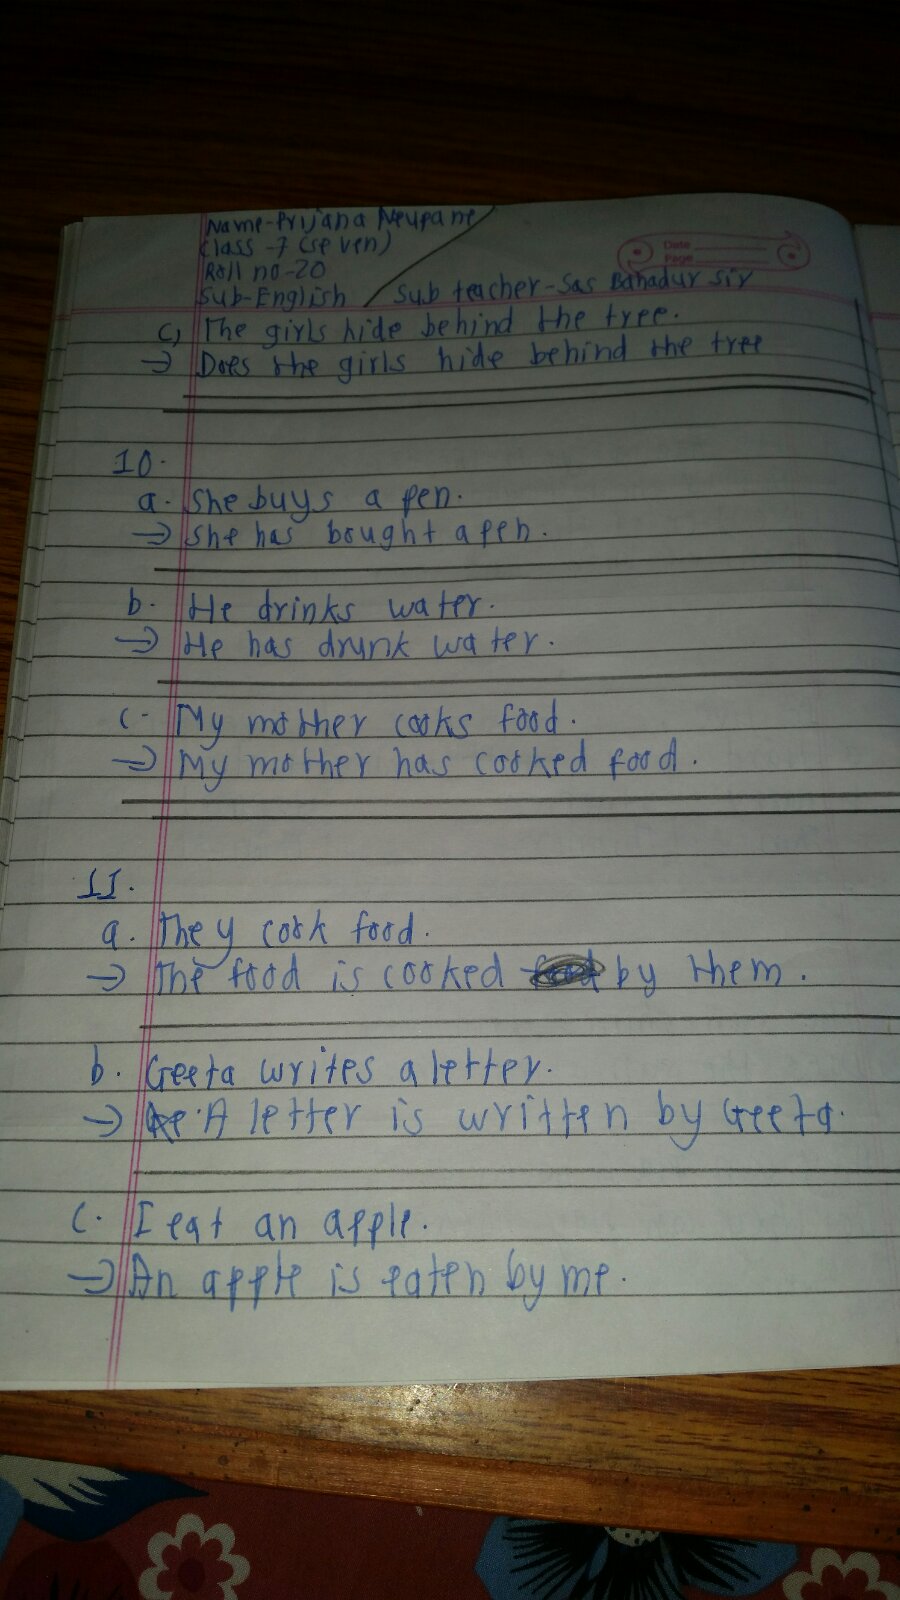 Name-Prijana Neupane
Class -7 (seven)
Roll no-20
Sub-English / Sub teacher-Sas Bahadur Sir
Date
Page
c) The girls hide behind the tree.
→ Does the girls hide behind the tree
10.
a. She buys a pen.
→ She has bought a pen.
b. He drinks water.
→ He has drunk water.
c- My mother cooks food.
→ My mother has cooked food.
11.
a. They cook food.
→ The food is cooked by them.
b. Geeta writes a letter.
→ A letter is written by Geeta.
c. I eat an apple.
→ An apple is eaten by me.